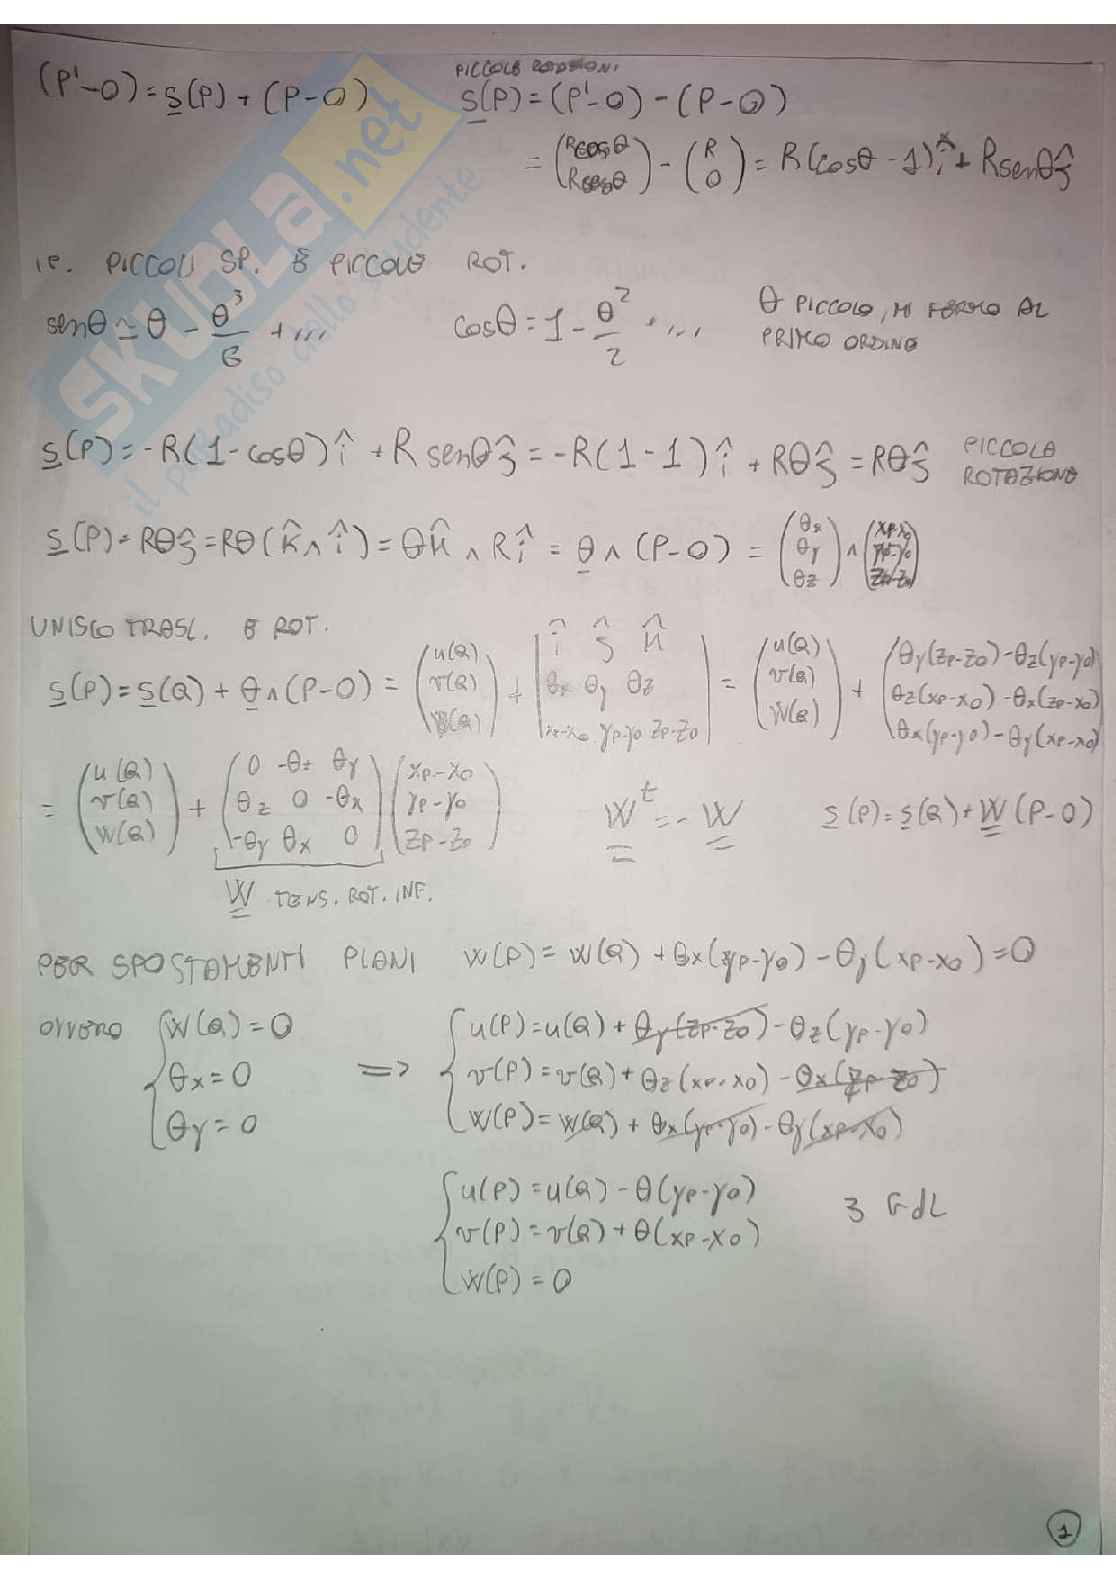 PICCOLE ROTAZIONI
(P'-O) = s(P) + (P-O)    s(P) = (P'-O) - (P-O)
= (Rcosθ Rsenθ) - (R 0) = R(cosθ - 1)î + Rsenθĵ
SKUOLA.net
il paradiso dello studente
i.e. PICCOLI SP. E PICCOLE ROT.
senθ ≃ θ - θ³/6 + ...    cosθ = 1 - θ²/2 + ...    θ PICCOLO, MI FERMO AL
PRIMO ORDINE
s(P) = -R(1-cosθ)î + R senθĵ = -R(1-1)î + Rθĵ = Rθĵ    PICCOLA
ROTAZIONE
s(P) = Rθĵ = Rθ(k̂ ∧ î) = θk̂ ∧ Rî = θ ∧ (P-O) = (θx θy θz) ∧ (xP-xO yP-yO zP-zO)
UNISCO TRASL. E ROT.
s(P) = s(Q) + θ ∧ (P-O) = (u(Q) v(Q) w(Q)) + |î ĵ k̂ θx θy θz xP-xO yP-yO zP-zO| = (u(Q) v(Q) w(Q)) + (θy(zP-zO)-θz(yP-yO) θz(xP-xO)-θx(zP-zO) θx(yP-yO)-θy(xP-xO))
= (u(Q) v(Q) w(Q)) + (0 -θz θy θz 0 -θx -θy θx 0)(xP-xO yP-yO zP-zO)    Wᵗ = -W    s(P) = s(Q) + W(P-O)
W TENS. ROT. INF.
PER SPOSTAMENTI PIANI    w(P) = w(Q) + θx(yP-yO) - θy(xP-xO) = 0
OVVERO { w(Q) = 0    => { u(P) = u(Q) + θy(zP-zO) - θz(yP-yO)
θx = 0    v(P) = v(Q) + θz(xP-xO) - θx(zP-zO)
θy = 0    w(P) = w(Q) + θx(yP-yO) - θy(xP-xO)
{ u(P) = u(Q) - θ(yP-yO)    3 GdL
v(P) = v(Q) + θ(xP-xO)
w(P) = 0
1